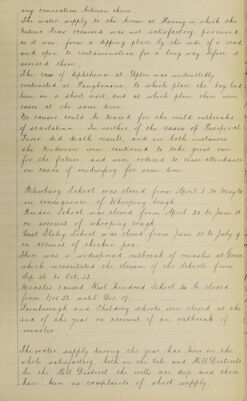 any connection between them.
The water supply to the houses at Hanney in which the
Enteric Fever occurred was not satisfactory, procured
as it was, from a dipping place by the side of a road
and open to contamination for a long way before it
arrived there.
The case of diphtheria at Upton was undoubtedly
contracted at Pangbourne, to which place the boy had
been on a short visit, and at which place there were
cases at the same time.
No causes could be traced for the mild outbreaks
of scarlatina. In neither of the cases of Puerperal
Fever did death result, and in both instances
the Midwives were cautioned to take great care
for the future, and were ordered to cease attendance
on cases of midwifery for some time.
Blewbury School was closed from April 5 to May
in consequence of Whooping Cough.
Hendred School was closed from April 20 to June 11
on account of whooping cough.
East School was closed from June 21 to July 9
on account of chicken pox.
There was a widespread outbreak of measles at Grove
which necessitated the closure of the schools from
Sep 26 to Oct. 22.
Measles caused West Hendred School to be closed
from Nov 22 until Dec. 17.
Farnborough and Childrey schools were closed at the
end of the year on account of an outbreak of
measles.
The water supply during the year has been on the
whole satisfactory, both in the Vale and Hill Districts.
In the Hill District the wells are deep and there
have been no complaints of short supply.